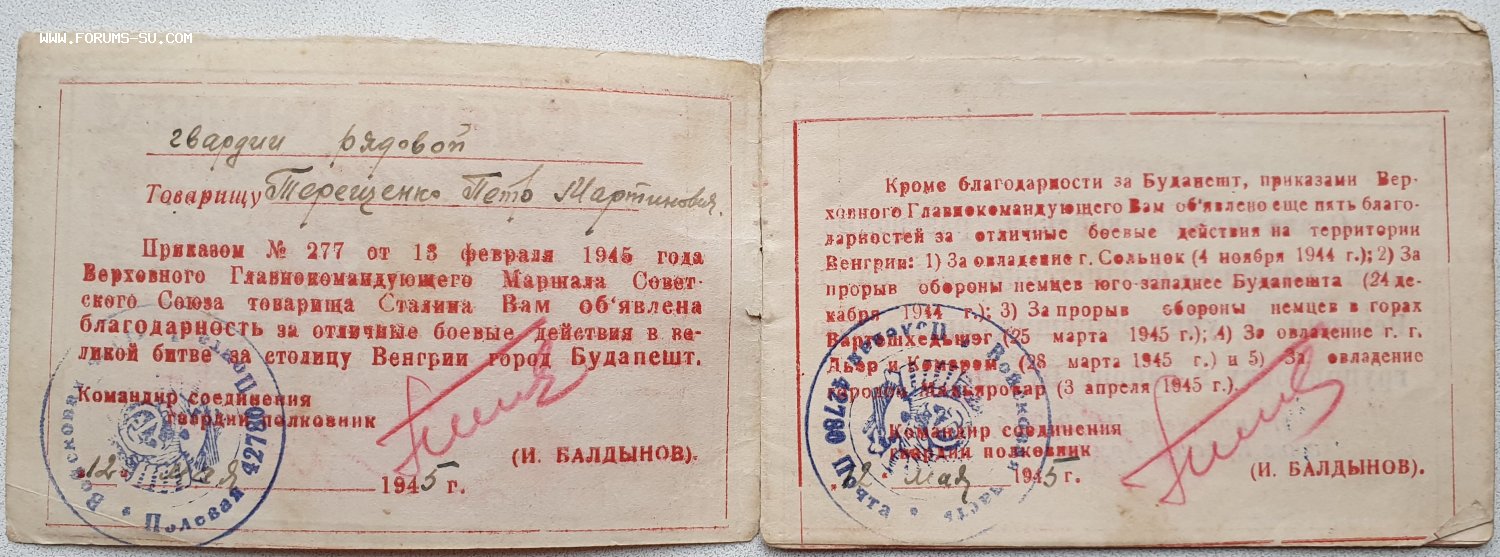 WWW.FORUMS-SU.COM
гвардии рядовой
Товарищу Терещенко Петро Мартинович.
Приказом № 277 от 13 февраля 1945 года
Верховного Главнокомандующего Маршала Совет-
ского Союза товарища Сталина Вам об'явлена
благодарность за отличные боевые действия в ве-
ликой битве за столицу Венгрии город Будапешт.
Командир соединения
гвардии полковник
(И. БАЛДЫНОВ).
"12" мая 1945 г.
Полевая почта 42780
Кроме благодарности за Будапешт, приказами Вер-
ховного Главнокомандующего Вам об'явлено еще пять благо-
дарностей за отличные боевые действия на территории
Венгрии: 1) За овладение г. Сольнок (4 ноября 1944 г.); 2) За
прорыв обороны немцев юго-западнее Будапешта (24 де-
кабря 1944 г.); 3) За прорыв обороны немцев в горах
Вэртэшхедьшэг (25 марта 1945 г.); 4) За овладение г. г.
Дьер и Комаром (28 марта 1945 г.) и 5) За овладение
городом Мадьяровар (3 апреля 1945 г.).
Командир соединения
гвардии полковник
(И. БАЛДЫНОВ).
12 мая 1945 г.
Войсковая часть Полевая почта 42780